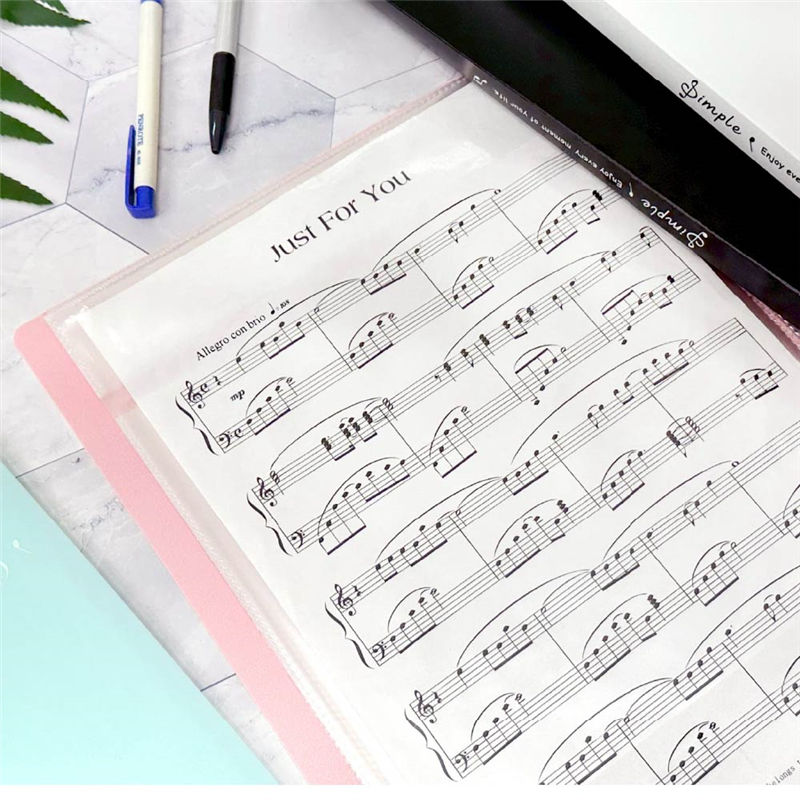 Just For You
Allegro con brio
mp
Simple
Enjoy every moment of your life.
Simple
Enjoy eve
belongs